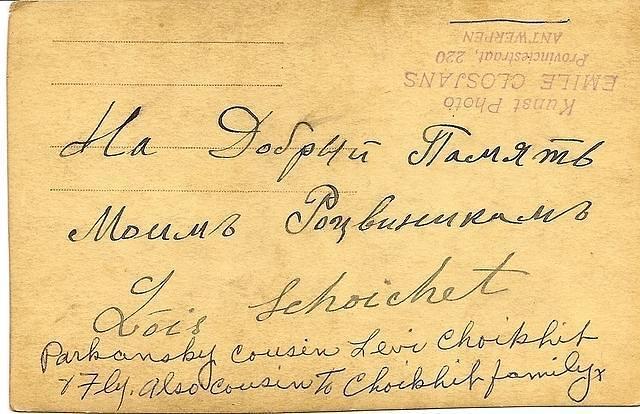 Kunst Photo
EMILE CLOSJANS
Provinciestraat, 220
ANTWERPEN
На Добрый Память
Моимъ Роцвиникамъ
Lóis Schoichet
Parkansky cousin Levi Choikhit
& Fly. Also cousin to Choikhit family